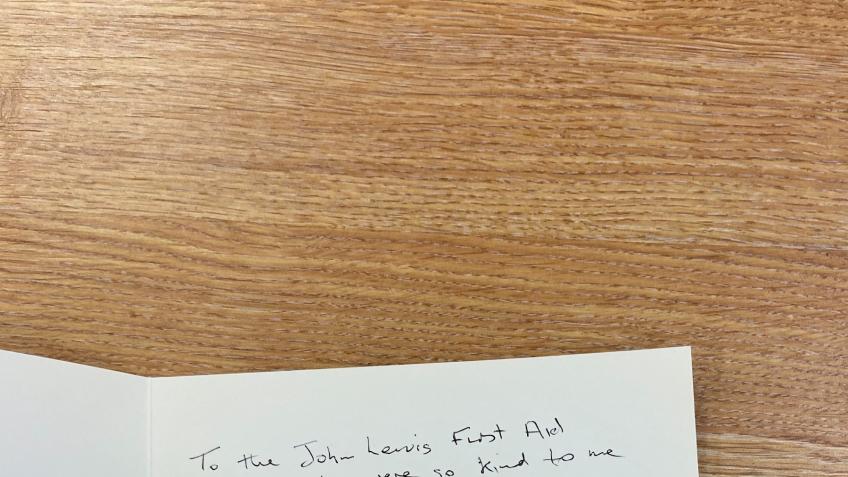 To the John Lewis First Aid
so kind to me